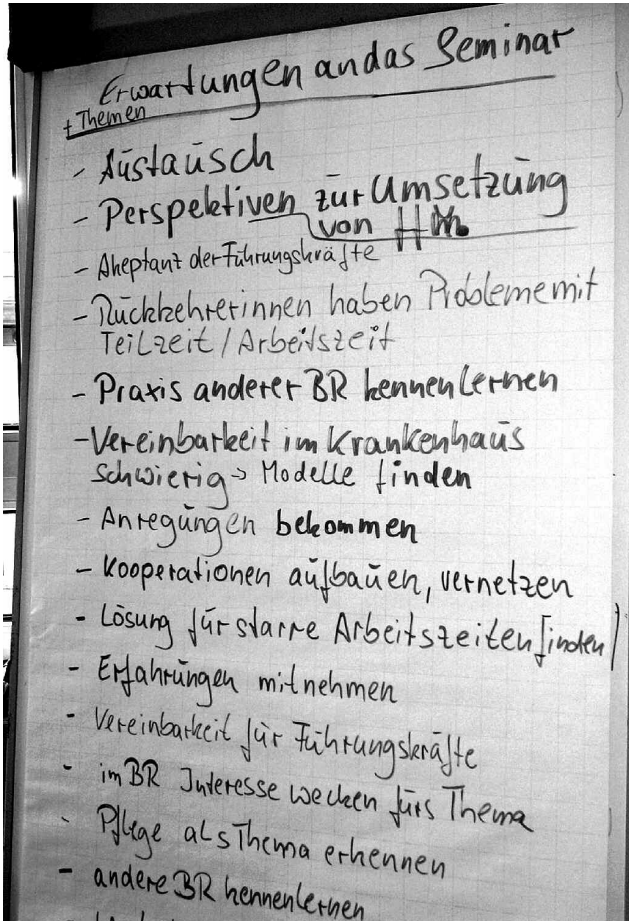 Erwartungen an das Seminar
+ Themen
- Austausch
- Perspektiven zur Umsetzung
von
- Akzeptanz der Führungskräfte
- Rückkehrerinnen haben Probleme mit
Teilzeit / Arbeitszeit
- Praxis anderer BR kennenlernen
- Vereinbarkeit im Krankenhaus
schwierig → Modelle finden
- Anregungen bekommen
- Kooperationen aufbauen, vernetzen
- Lösung für starre Arbeitszeiten finden
- Erfahrungen mitnehmen
- Vereinbarkeit für Führungskräfte
- im BR Interesse wecken fürs Thema
- Pflege als Thema erkennen
- andere BR kennenlernen